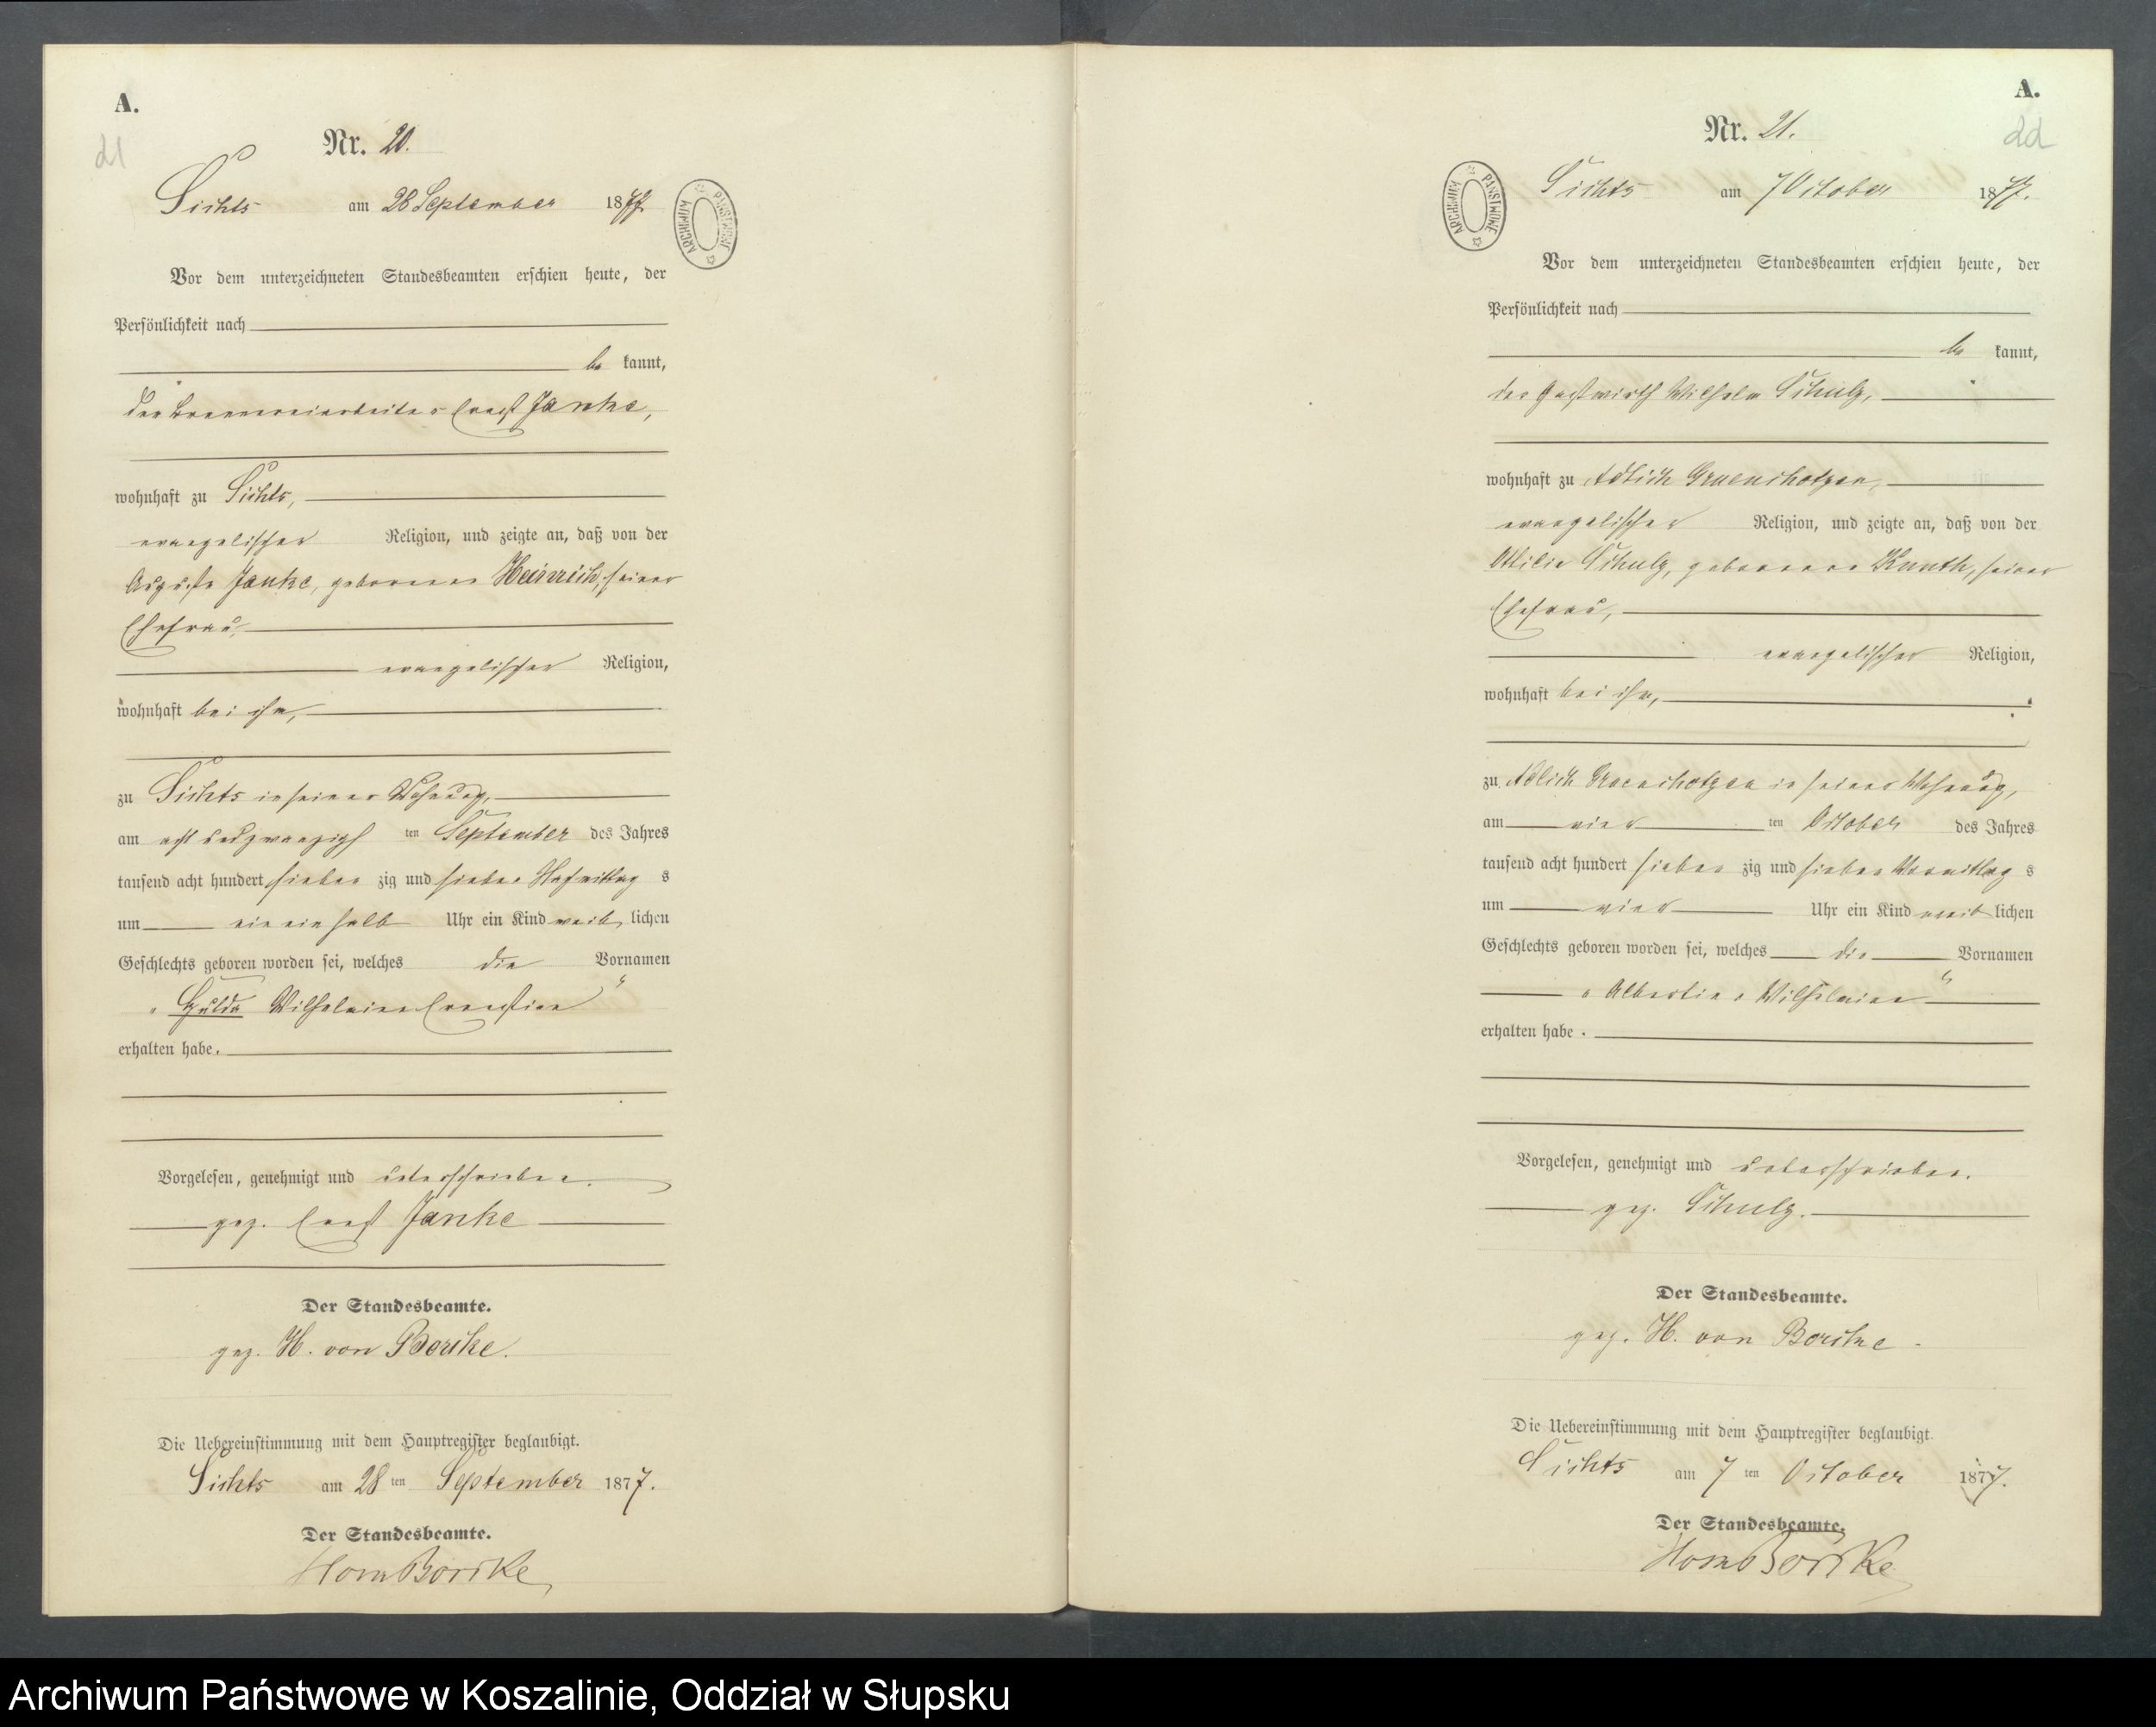 A.
21
Nr. 20.
Sichts am 28 September 1877
ARCHIWUM PAŃSTWOWE
Vor dem unterzeichneten Standesbeamten erschien heute, der
Persönlichkeit nach
be kannt,
der Brennereiarbeiter Ernst Janke,
wohnhaft zu Sichts,
evangelischer Religion, und zeigte an, daß von der
Auguste Janke, geborenen Heinrich, seiner
Ehefrau,
evangelischer Religion,
wohnhaft bei ihm,
zu Sichts in seiner Wohnung,
am acht und zwanzigsten September des Jahres
tausend acht hundert sieben zig und sieben Nachmittag s
um ein ein halb Uhr ein Kind weib lichen
Geschlechts geboren worden sei, welches die Vornamen
„Hulda Wilhelmine Ernestine“
erhalten habe.
Vorgelesen, genehmigt und unterschrieben.
gez. Ernst Janke
Der Standesbeamte.
gez. H. von Borcke.
Die Uebereinstimmung mit dem Hauptregister beglaubigt.
Sichts am 28 ten September 1877.
Der Standesbeamte.
HvonBorcke
A.
22
Nr. 21.
Sichts am 7 October 1877.
ARCHIWUM PAŃSTWOWE
Vor dem unterzeichneten Standesbeamten erschien heute, der
Persönlichkeit nach
be kannt,
der Gastwirth Wilhelm Schulz,
wohnhaft zu Adlich Gruenchotzen,
evangelischer Religion, und zeigte an, daß von der
Ottilie Schulz, geborenen Knuth, seiner
Ehefrau,
evangelischer Religion,
wohnhaft bei ihm,
zu Adlich Gruenchotzen in seiner Wohnung,
am vier ten October des Jahres
tausend acht hundert sieben zig und sieben Vormittag s
um vier Uhr ein Kind weib lichen
Geschlechts geboren worden sei, welches die Vornamen
„Albertine Wilhelmine“
erhalten habe.
Vorgelesen, genehmigt und unterschrieben.
gez. Schulz.
Der Standesbeamte.
gez. H. von Borcke.
Die Uebereinstimmung mit dem Hauptregister beglaubigt.
Sichts am 7 ten October 1877.
Der Standesbeamte.
HvonBorcke
Archiwum Państwowe w Koszalinie, Oddział w Słupsku